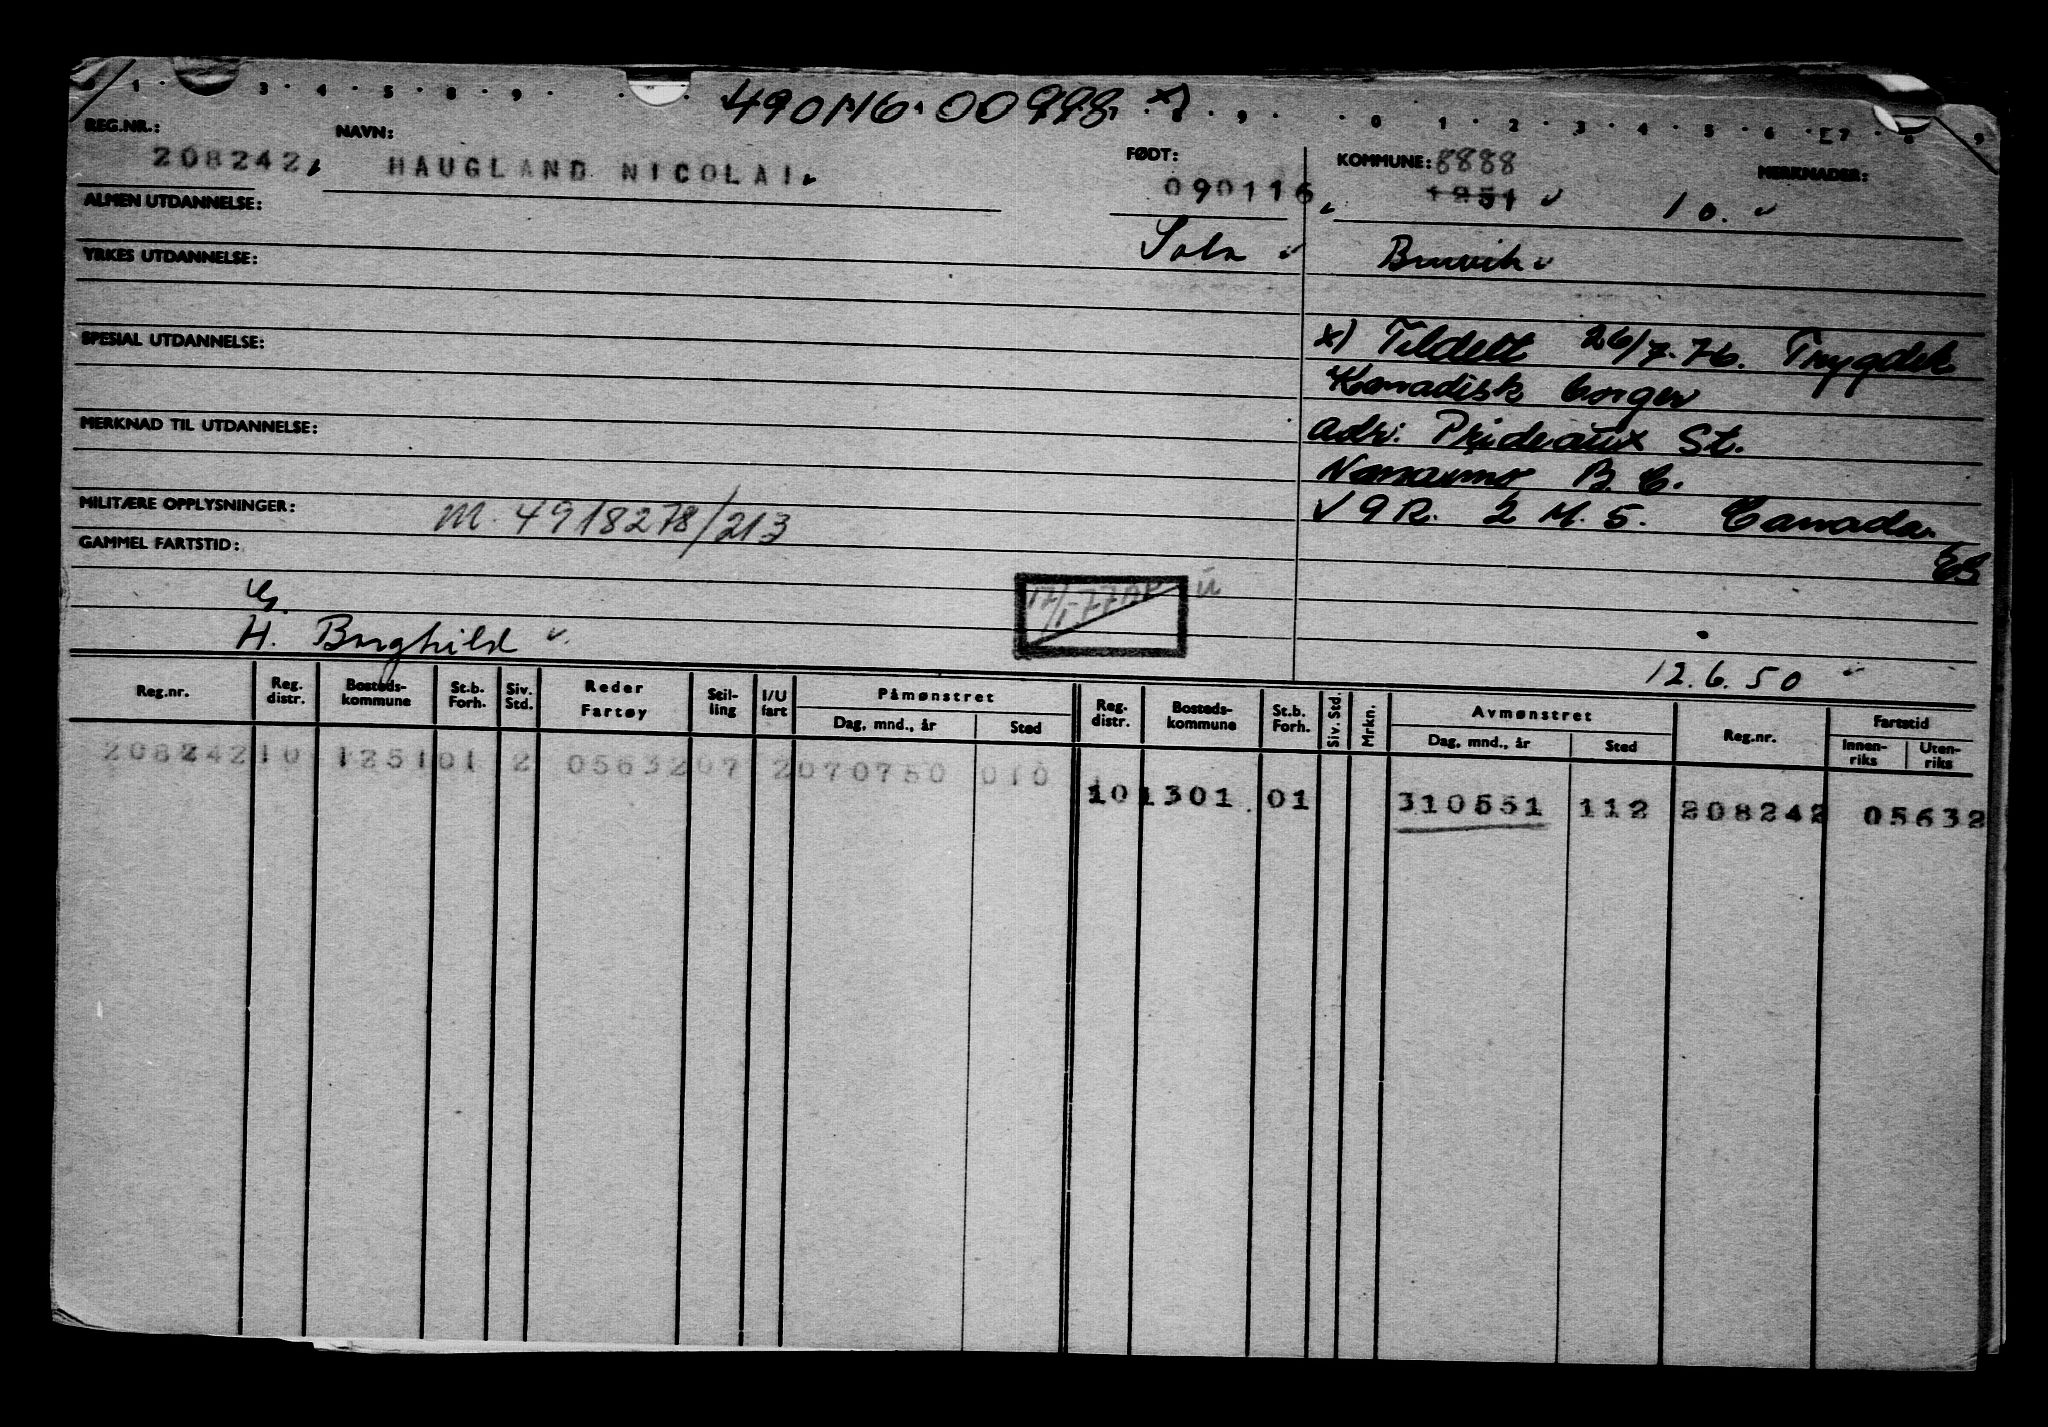 1 . . 3 . 4 . 5 . 8 . 9 . . 9 . . 0 . 1 . 2 . 3 . 4 . 5 . 6 . E7 . 8 9
490116.00998. x)
REG.NR.: NAVN: FØDT: KOMMUNE: 8888 MERKNADER:
208242 HAUGLAND NICOLAI 090116 1251 10.
ALMEN UTDANNELSE: Sola Bruvik
YRKES UTDANNELSE:
SPESIAL UTDANNELSE: x) Tildelt 26/7-76. Trygdek
Kanadisk borger
MERKNAD TIL UTDANNELSE: adr: Prideaux St.
Nanaimo B.C.
MILITÆRE OPPLYSNINGER: M. 4918278/213 V9R. 2 M. 5. Canada.
GAMMEL FARTSTID: ES
G. 17/1-77
H. Borghild
12.6.50
Reg.nr. Reg. distr. Bosteds-kommune St.b. Forh. Siv. Std. Reder Fartøy Stil-ling I/U fart Påmønstret Dag, mnd., år Sted Reg. distr. Bosteds-kommune St.b. Forh. Siv. Std. Mrkn. Avmønstret Dag, mnd., år Sted Reg.nr. Fartstid Innen-riks Uten-riks
208242 10 1251 01 2 05632 07 2 070750 010
10 1301 01 310551 112 208242 05632